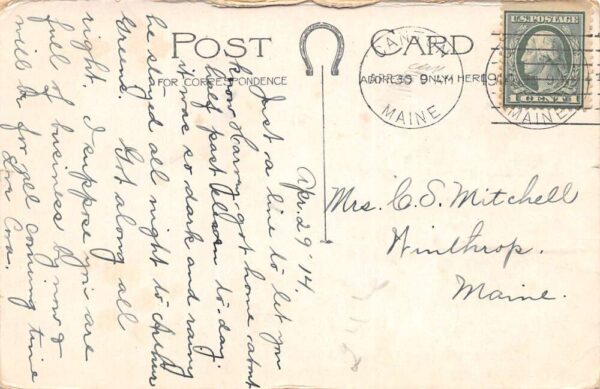 POST CARD
FOR CORRESPONDENCE
ADDRESS ONLY HERE
CANTON
APR 30 9 AM
MAINE
U.S. POSTAGE
1 CENT 1
MAINE
Apr. 29 '14.
Just a line to let you
know Harry got home about
half past eleven to-day.
it was so dark and rainy
he stayed all night to Arthur
Greens. Got along all
right. I suppose you are
full of business by now &
will be for all coming time
Mrs. C. S. Mitchell
Winthrop.
Maine.